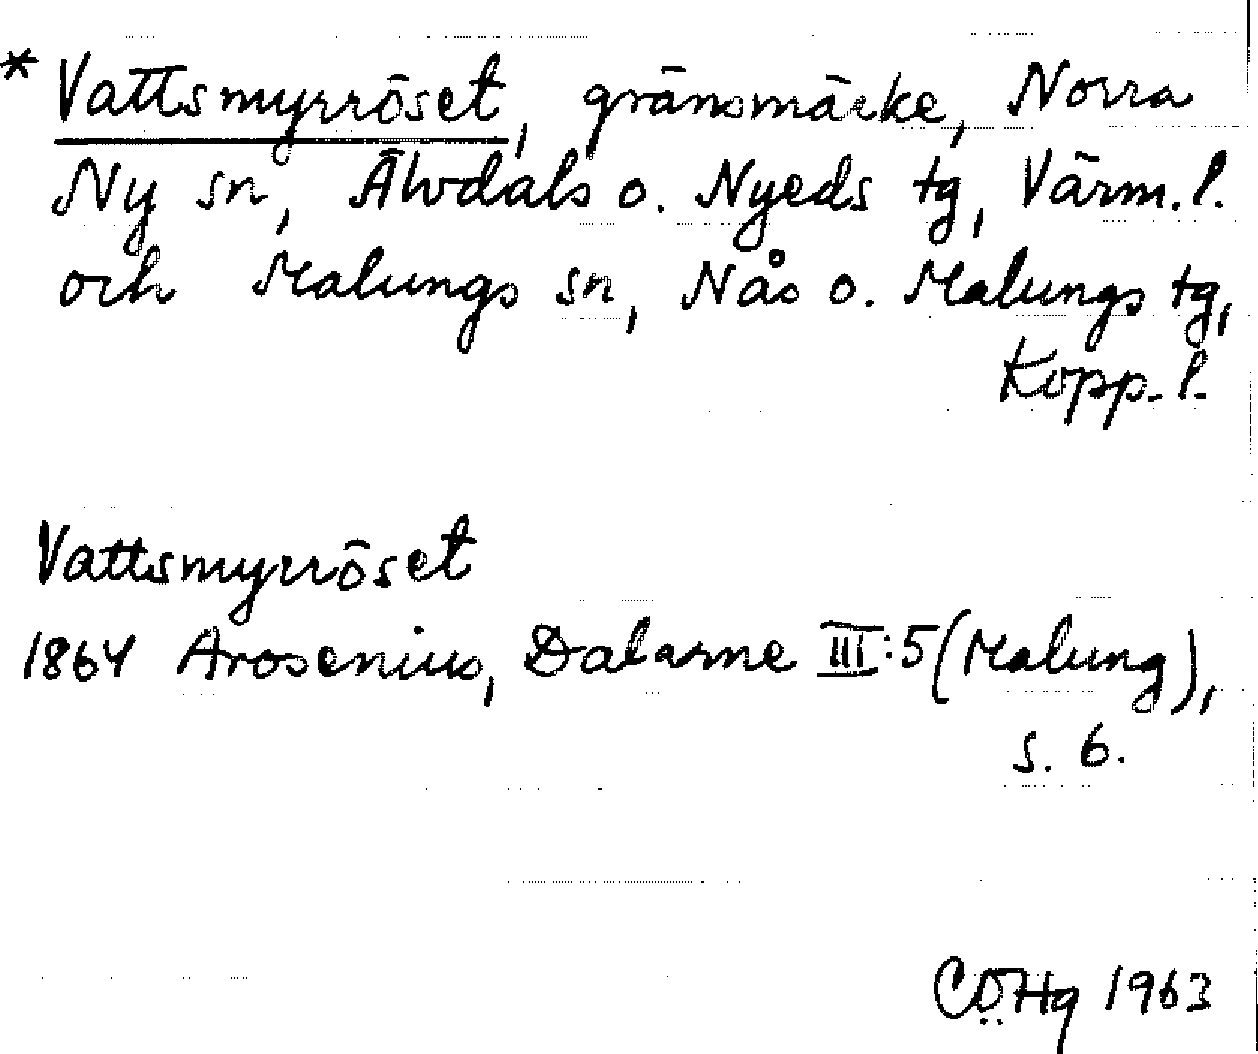 * Vattsmyrröset, gränsmärke, Norra
Ny sn, Älvdals o. Nyeds tg, Värm. l.
och Malungs sn, Nås o. Malungs tg,
Kopp. l.
Vattsmyrröset
1864 Arosenius, Dalarne III:5 (Malung),
s. 6.
1963